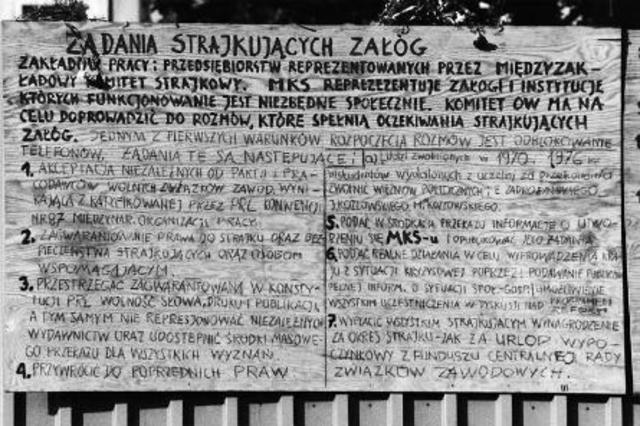 ŻĄDANIA STRAJKUJĄCYCH ZAŁÓG
ZAKŁADÓW PRACY I PRZEDSIĘBIORSTW REPREZENTOWANYCH PRZEZ MIĘDZYZAK-
ŁADOWY KOMITET STRAJKOWY. MKS REPREZEZENTUJE ZAŁOGI I INSTYTUCJE
KTÓRYCH FUNKCJONOWANIE JEST NIEZBĘDNE SPOŁECZNIE. KOMITET ÓW MA NA
CELU DOPROWADZIĆ DO ROZMÓW, KTÓRE SPEŁNIĄ OCZEKIWANIA STRAJKUJĄCYCH
ZAŁÓG. JEDNYM Z PIERWSZYCH WARUNKÓW ROZPOCZĘCIA ROZMÓW JEST ODBLOKOWANIE
TELEFONÓW. ŻĄDANIA TE SĄ NASTĘPUJĄCE:
1. AKCEPTACJA NIEZALEŻNYCH OD PARTII I PRA-
CODAWCÓW WOLNYCH ZWIĄZKÓW ZAWOD. WYNI-
KAJĄCA Z RATYFIKOWANEJ PRZEZ PRL KONWENCJI
NR 87 MIĘDZYNAR. ORGANIZACJI PRACY.
2. ZAGWARANTOWANIE PRAWA DO STRAJKU ORAZ BEZ-
PIECZEŃSTWA STRAJKUJĄCYCH ORAZ OSOBOM
WSPOMAGAJĄCYM.
3. PRZESTRZEGAĆ ZAGWARANTOWANĄ W KONSTY-
TUCJI PRL WOLNOŚĆ SŁOWA, DRUKU I PUBLIKACJI,
A TYM SAMYM NIE REPRESJONOWAĆ NIEZALEŻNYCH
WYDAWNICTW ORAZ UDOSTĘPNIĆ ŚRODKI MASOWE-
GO PRZEKAZU DLA WSZYSTKICH WYZNAŃ.
4. PRZYWRÓCIĆ DO POPRZEDNICH PRAW
a) LUDZI ZWOLNIONYCH W 1970, 1976
STUDENTÓW WYDALONYCH Z UCZELNI ZA PRZEKONANIA
ZWOLNIĆ WIĘŹNIÓW POLITYCZNYCH: E ZADROŻYŃSKIEGO,
J. KOZŁOWSKIEGO M. KOZŁOWSKIEGO.
5. PODAĆ W ŚRODKACH PRZEKAZU INFORMACJĘ O UTWO-
RZENIU SIĘ MKS-u I OPUBLIKOWAĆ JEGO ŻĄDANIA
6. PODAĆ REALNE DZIAŁANIA W CELU WYPROWADZENIA KRA-
JU Z SYTUACJI KRYZYSOWEJ POPRZEZ: PODAWANIE PUBLICZ.
PEŁNEJ INFORM. O SYTUACJI SPOŁ-GOSP. I UMOŻLIWIENIE
WSZYSTKIM UCZESTNICZENIA W DYSKUSJI NAD PROGRAMEM
REFORM
7. WYPŁACIĆ WSZYSTKIM STRAJKUJĄCYM WYNAGRODZENIE
ZA OKRES STRAJKU-JAK ZA URLOP WYPO-
CZYNKOWY Z FUNDUSZU CENTRALNEJ RADY
ZWIĄZKÓW ZAWODOWYCH.